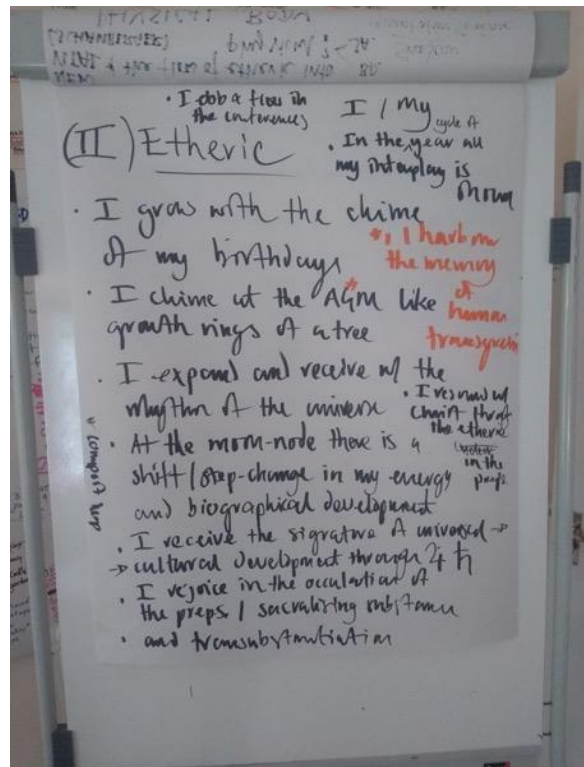 • I ebb & flow in
the conferences
I / My
cycle of
• In the year all
my interplay is
(II) Etheric
• I grow with the chime
of my birthdays
*• I harbour
the memory
of
human
• I chime at the AGM* like
growth rings of a tree
• I expand and receive w/ the
rhythm of the universe
• I resound w/
Christ throt
the etheric
in the
preps
• At the moon-node there is a
shift / step-change in my energy
and biographical development
• compost heap
• I receive the signature of universal →
→ cultural development through ♃ ♄
• I rejoice in the occultation of
the preps / sacralizing substance
• and transubstantiation